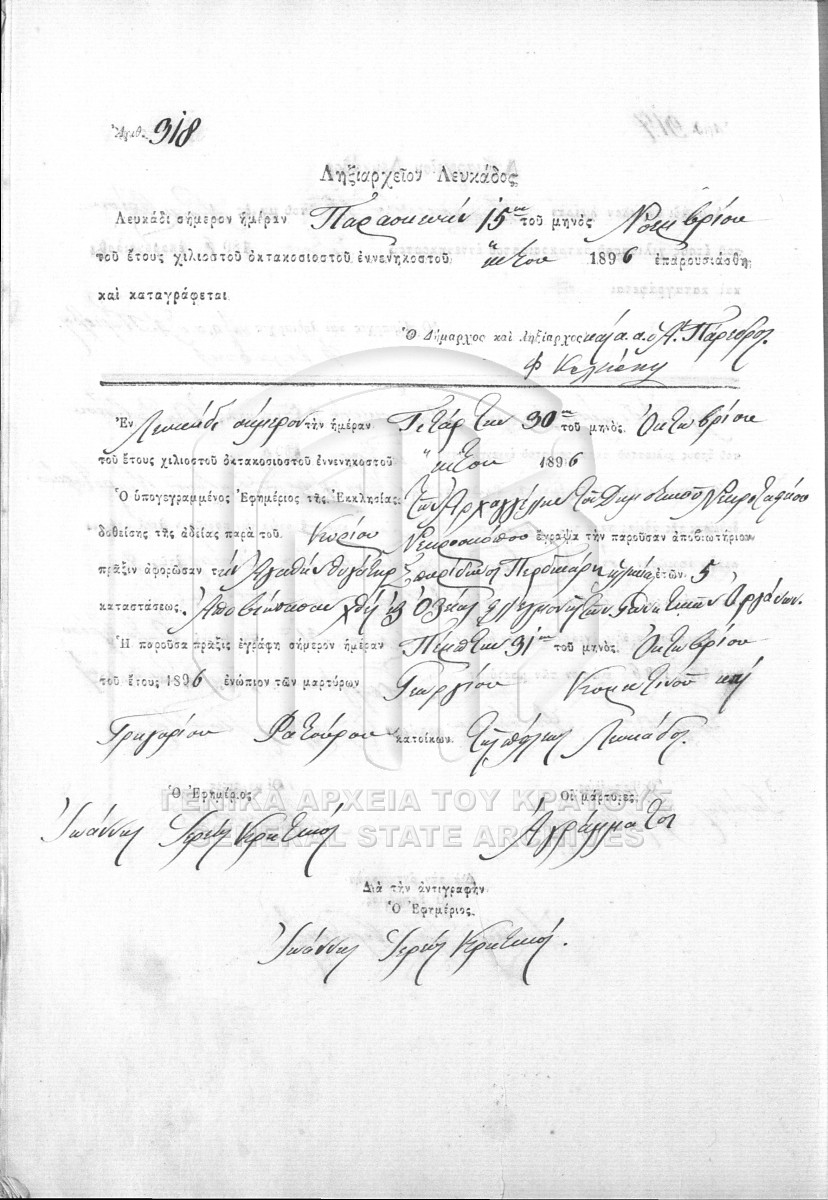 Ἀριθ. 318
Ληξιαρχεῖον Λευκάδος
Λευκάδι σήμερον ἡμέραν Παρασκευήν 15ην τοῦ μηνὸς Νοεμβρίου
τοῦ ἔτους χιλιοστοῦ ὀκτακοσιοστοῦ ἐννενηκοστοῦ ἕκτου 1896 ἐπαρουσιάσθη
καὶ καταγράφεται
Ὁ Δήμαρχος καὶ Ληξίαρχος Πάρεδρος
Ἐν Λευκάδι σήμερον τὴν ἡμέραν Τετάρτην 30ην τοῦ μηνὸς Ὀκτωβρίου
τοῦ ἔτους χιλιοστοῦ ὀκτακοσιοστοῦ ἐννενηκοστοῦ ἕκτου 1896
Ὁ ὑπογεγραμμένος Ἐφημέριος τῆς Ἐκκλησίας τῶν Ἀρχαγγέλων τοῦ Δημοτικοῦ Νεκροταφείου
δοθείσης τῆς ἀδείας παρὰ τοῦ Κυρίου Νεκροσκόπου ἔγραψα τὴν παροῦσαν ἀποβιωτήριον
πρᾶξιν ἀφορῶσαν τὴν Ἀγαθὴν θυγάτηρ Σπυρίδωνος ἐτῶν 5
καταστάσεως. Ἀποβιώσασα χθὲς ἐξ Ὀξείας τῶν Ὀργάνων.
Ἡ παροῦσα πρᾶξις ἐγράφη σήμερον ἡμέραν Πέμπτην 31ην τοῦ μηνὸς Ὀκτωβρίου
τοῦ ἔτους 1896 ἐνώπιον τῶν μαρτύρων Γεωργίου καὶ
Γρηγορίου Φατούρου κατοίκων τῆς πόλεως Λευκάδος.
Ὁ Ἐφημέριος Οἱ μάρτυρες
Ἰωάννης Ἱερεὺς Κρητικός Ἀγράμματοι
Διὰ τὴν ἀντιγραφὴν
Ὁ Ἐφημέριος
Ἰωάννης Ἱερεὺς Κρητικός.
ΓΕΝΙΚΑ ΑΡΧΕΙΑ ΤΟΥ ΚΡΑΤΟΥΣ
GENERAL STATE ARCHIVES